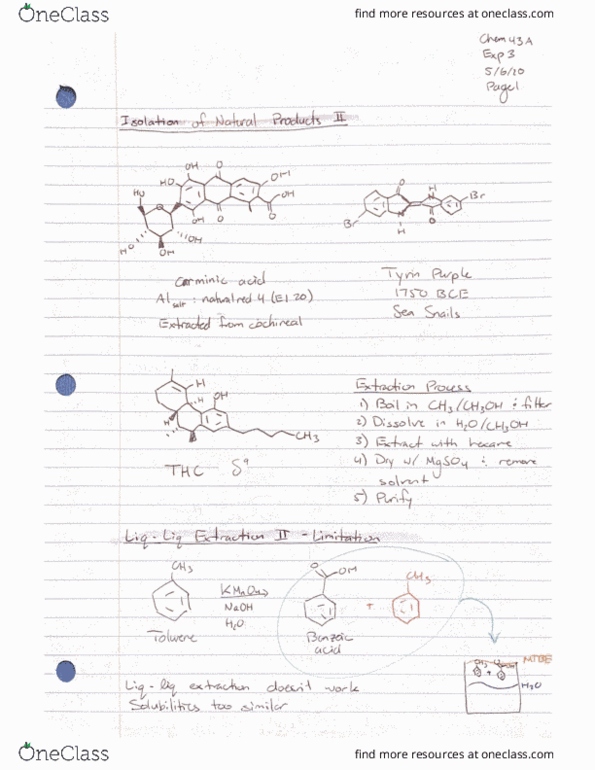 OneClass
find more resources at oneclass.com
Chem 43A
Exp 3
5/6/20
Page 1
Isolation of Natural Products II
OH O OH
HO OH
HO O
O
OH O O
HO OH
OH
O H
N Br
Br N O
H
Carminic acid
Al salt : natural red 4 (E120)
Extracted from cochineal
Tyrin Purple
1750 BCE
Sea Snails
H OH
H
H
CH3
THC δ9
Extraction Process
1) Boil in CH3/CH3OH : filter
2) Dissolve in H2O/CH3OH
3) Extract with hexane
4) Dry w/ MgSO4 : remove
solvent
5) Purify
Liq-Liq Extraction II - Limitation
CH3
KMnO4
NaOH
H2O
Toluene
O OH
Benzoic
acid
+
CH3
MTBE
H2O
Liq-liq extraction doesn't work
Solubilities too similar
OneClass
find more resources at oneclass.com